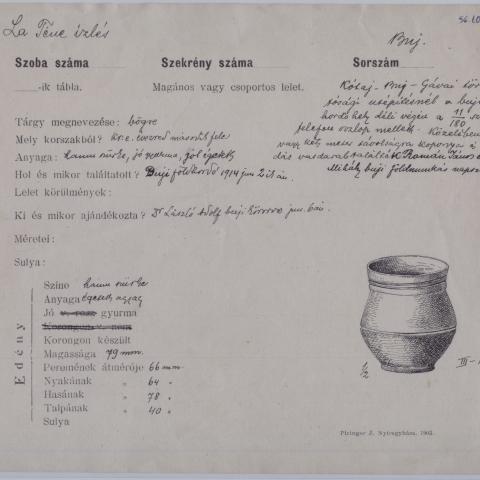 La Tène izlés
56.10
Buj.
Szoba száma
Szekrény száma
Sorszám
-ik tábla.
Magános vagy csoportos lelet.
Kótaj-Buj-Gávai
a buji
dülő végén a 11/180
telefon oszlop mellett. Közelében
vagy két
koporsó
vasdarab
Román János
Mihály buji földmunkás
Tárgy megnevezése: bögre
Mely korszakból? kr. e. évezred második fele
Anyaga: hamu szürke, jó gyurma, jól égetett
Hol és mikor találtatott? Buji földhordó 1914 jun 2ikán.
Lelet körülmények:
Ki és mikor ajándékozta? Dr László Adolf buji körorvos jun. 6án.
Méretei:
Sulya:
Edény
Szine hamu szürke
Anyaga égetett agyag
Jó v. rosz gyurma
Korongon v. nem
Korongon készült
Magassága 79 mm.
Peremének átmérője 66 mm
Nyakának " 64 "
Hasának " 78 "
Talpának " 40 "
Sulya
1/2
III-
Piringer J. Nyiregyháza. 1903.